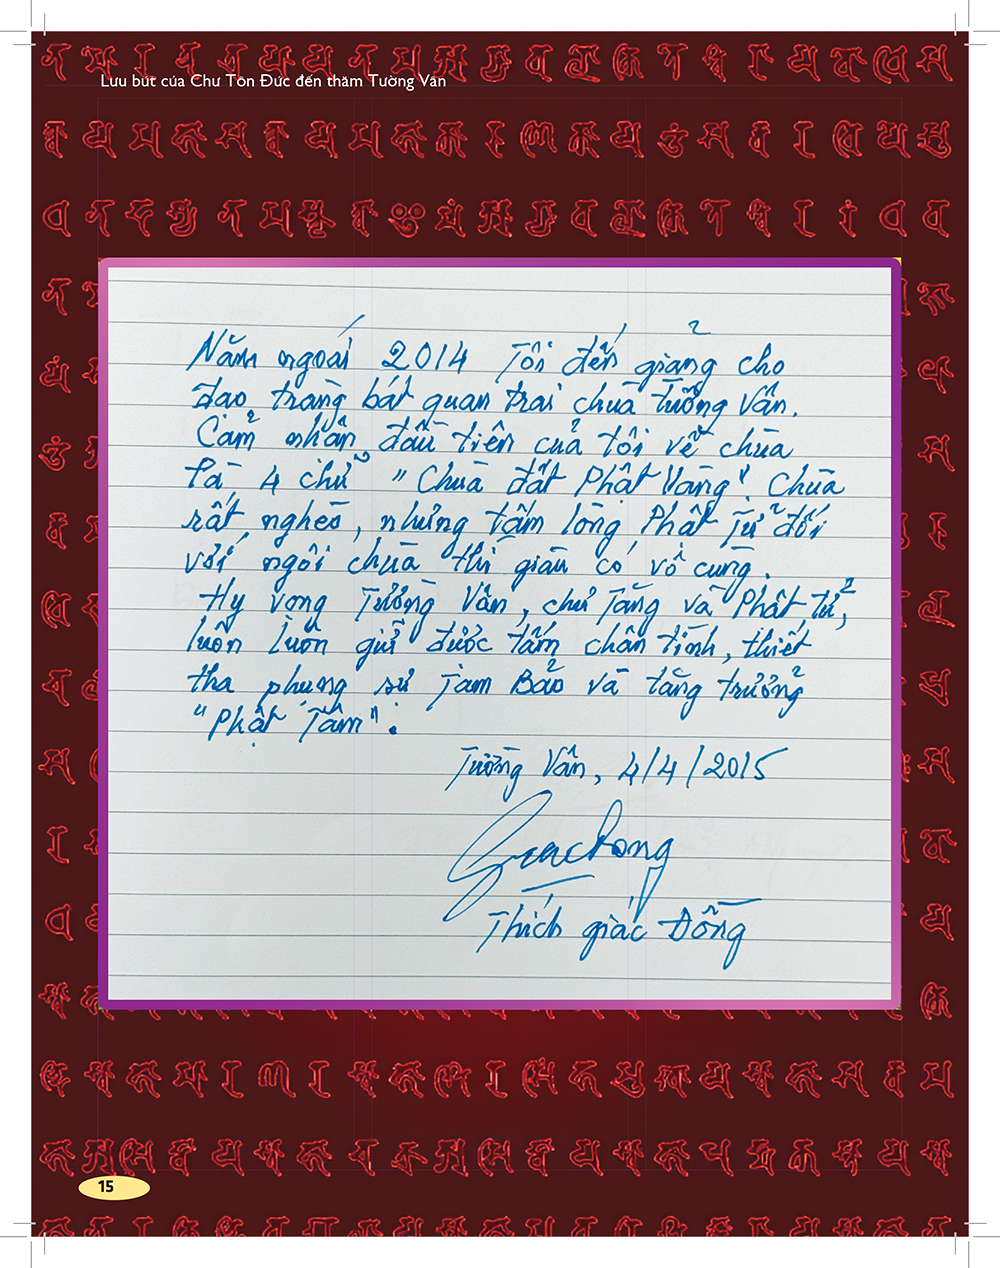 Lưu bút của Chư Tôn Đức đến thăm Tường Vân
Năm ngoái 2014 Tôi đến giảng cho
đạo tràng bát quan trai chùa Tường Vân.
Cảm nhận đầu tiên của tôi về chùa
là 4 chữ "Chùa đất Phật Vàng". Chùa
rất nghèo, nhưng tấm lòng Phật Tử đối
với ngôi chùa thì giàu có vô cùng.
Hy vọng Tường Vân, chư Tăng và Phật tử,
luôn luôn giữ được tấm chân tình, thiết
tha phụng sự Tam Bảo và tăng trưởng
"Phật Tâm".
Tường Vân, 4/4/2015
Giacdong
Thích giác Đồng
15